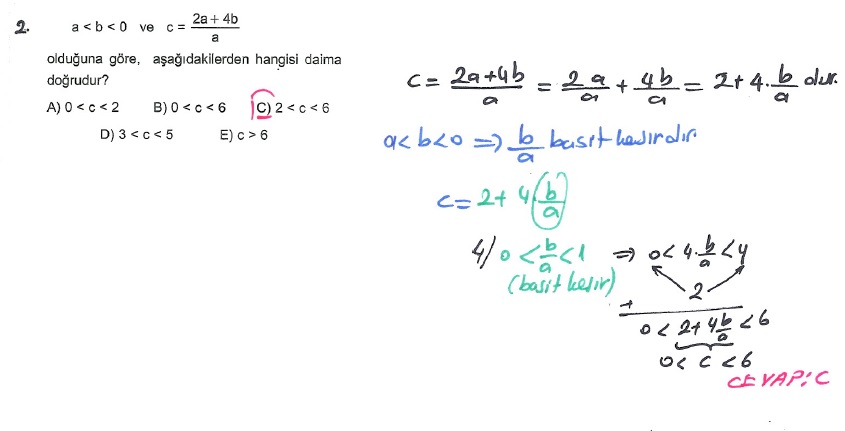 2. a < b < 0 ve c = (2a + 4b)/a
olduğuna göre, aşağıdakilerden hangisi daima
doğrudur?
A) 0 < c < 2 B) 0 < c < 6 C) 2 < c < 6
D) 3 < c < 5 E) c > 6
c = (2a+4b)/a = 2a/a + 4b/a = 2 + 4.b/a dır.
a < b < 0 => b/a basit kesirdir.
c = 2 + 4 (b/a)
4/ 0 < b/a < 1 => 0 < 4.b/a < 4
(basit kesir)
2
+
0 < 2 + 4b/a < 6
0 < c < 6
CEVAP: C